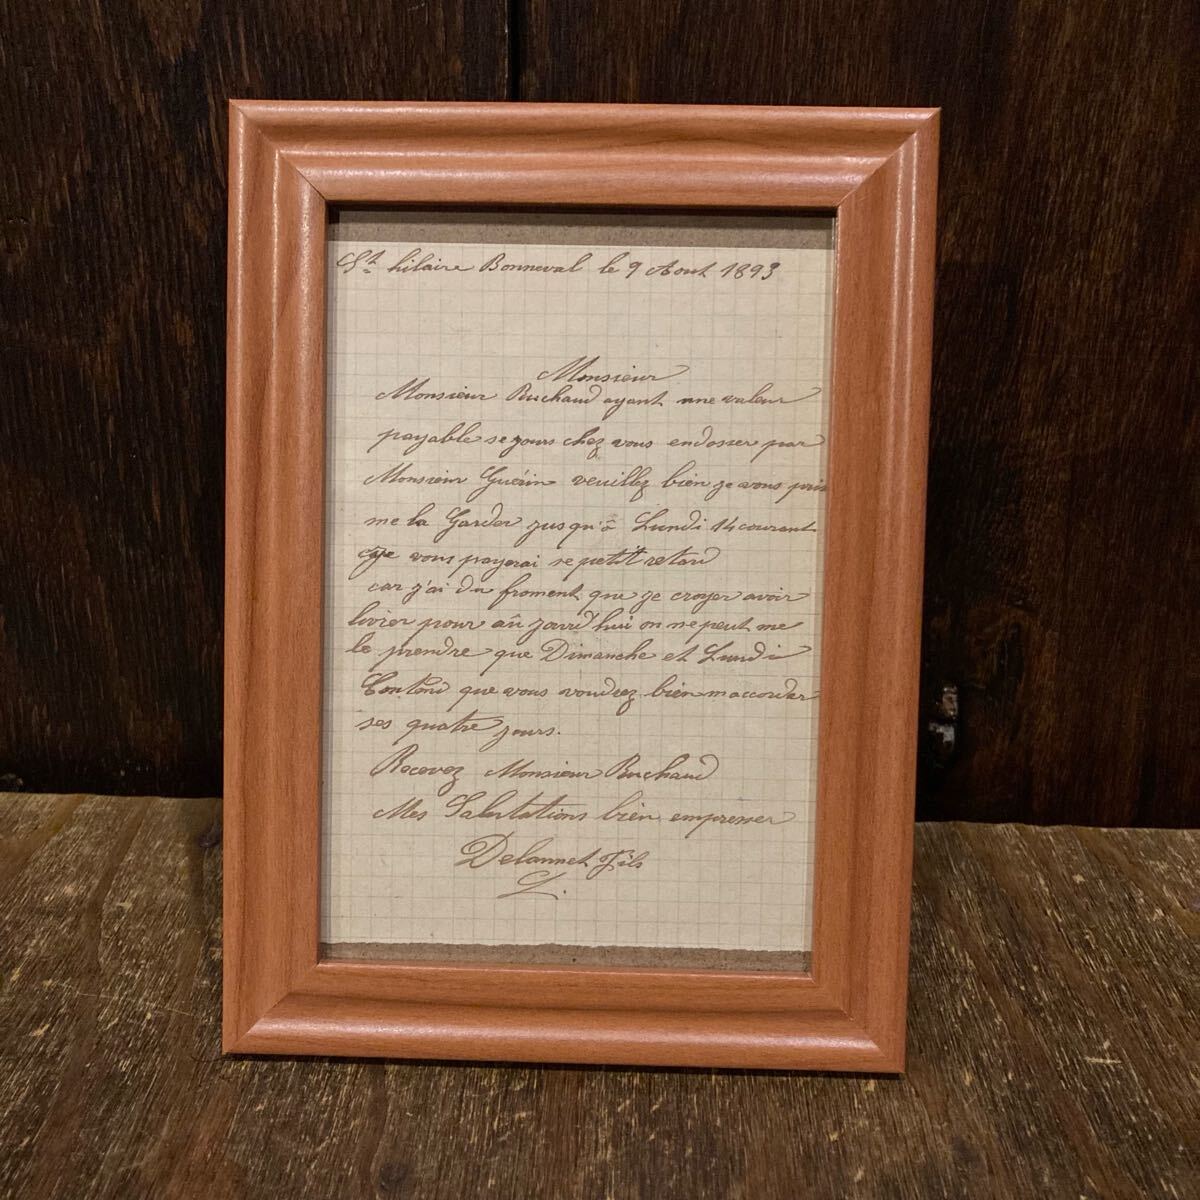 St hilaire Bonneval le 9 Aout 1893
Monsieur
Monsieur Ruchaud ayant une valeur
payable se jours chez vous endosser par
Monsieur Guérin veuillez bien je vous prie
me la Garder jusqu'à Lundi 14 courant
je vous payerai se petit retard
car j'ai du froment que je croyer avoir
livrer pour aû jourd'hui on ne peut me
le prendre que Dimanche et Lundi
que vous voudrez bien maccorder
ses quatre jours.
Recevez Monsieur Ruchaud
Mes Salutations bien empresser
Delannet Fils
L.